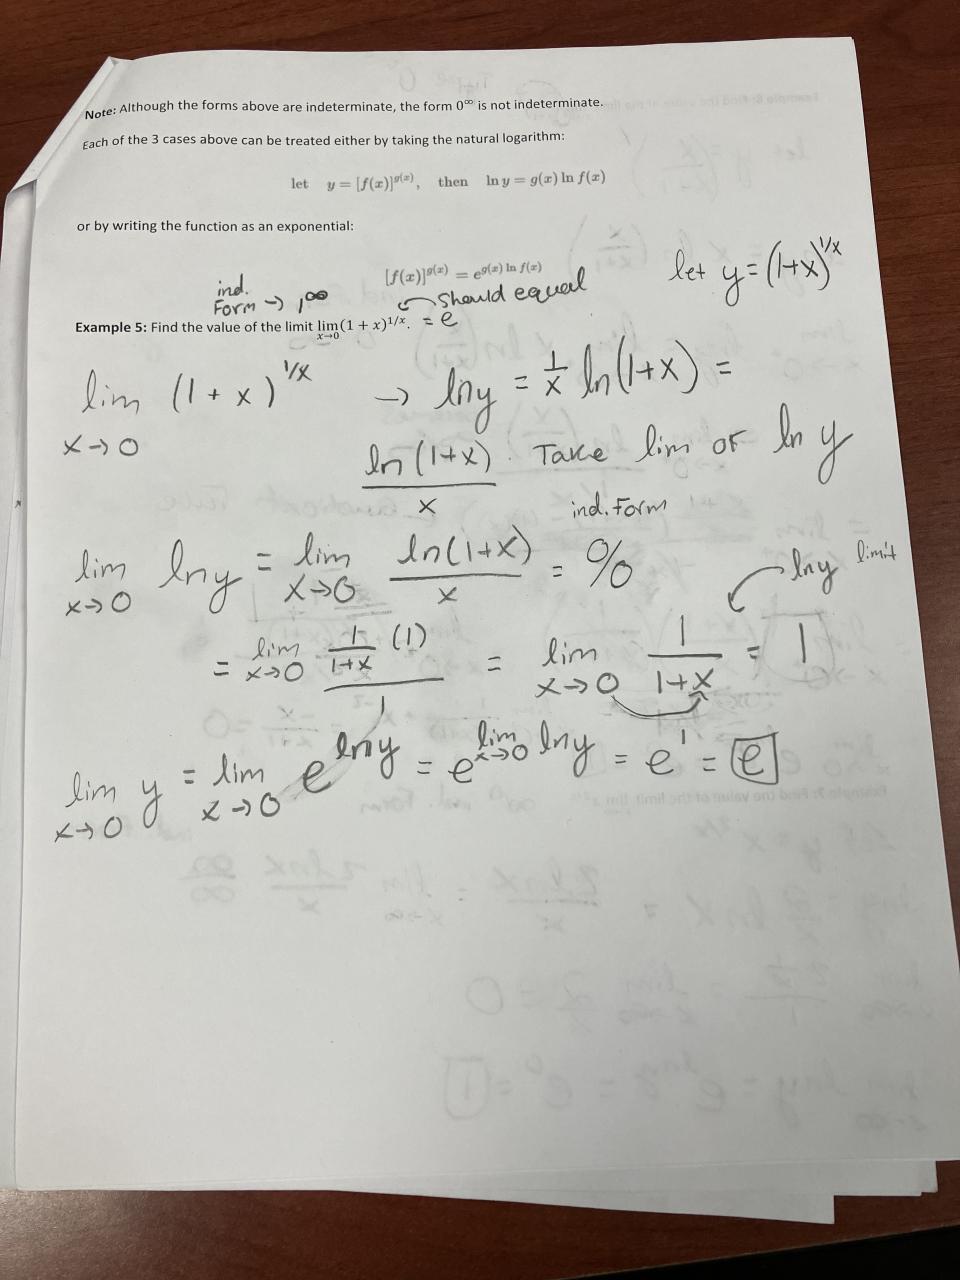 Note: Although the forms above are indeterminate, the form 0^∞ is not indeterminate.
Each of the 3 cases above can be treated either by taking the natural logarithm:
let y = [f(x)]^g(x), then ln y = g(x) ln f(x)
or by writing the function as an exponential:
[f(x)]^g(x) = e^g(x) ln f(x)
let y = (1+x)^1/x
ind.
Form → 1^∞
should equal
Example 5: Find the value of the limit lim x→0 (1 + x)^1/x. = e
lim x→0 (1 + x)^1/x → ln y = 1/x ln(1+x) =
ln(1+x)/x . Take lim of ln y
ind. Form
lim x→0 ln y = lim x→0 ln(1+x)/x = 0/0
ln y limit
= lim x→0 (1/(1+x) (1))/1 = lim x→0 1/(1+x) = 1
lim x→0 y = lim x→0 e^ln y = e^lim x→0 ln y = e^1 = e